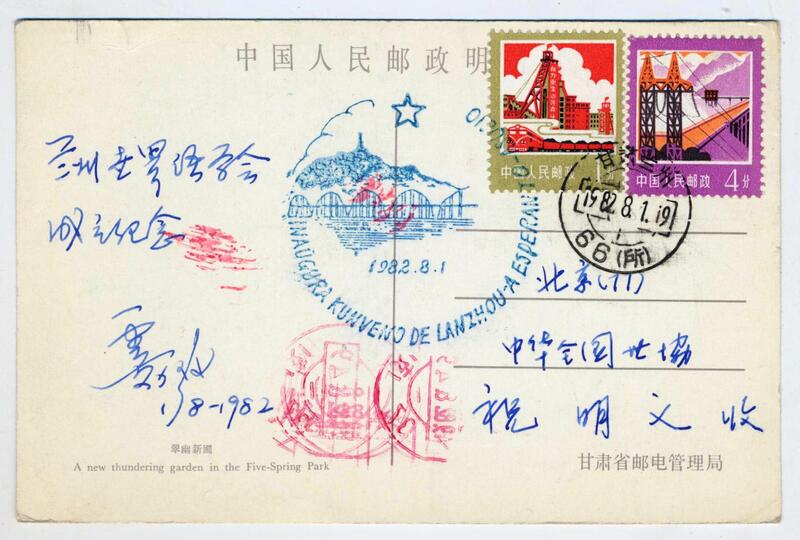 中国人民邮政明
中国人民邮政 1分
中国人民邮政 4分
兰州世界语学会
成立纪念
1/8-1982
1982.8.1
INAUGURA KUNVENO DE LANZHOU-A ESPERANTO
1982.8.1.19
66(所)
北京(11)
中华全国世协
祝明义收
翠幽新園
A new thundering garden in the Five-Spring Park
甘肃省邮电管理局